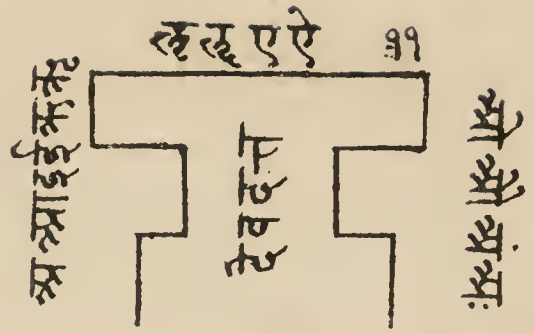 लृ लॄ ए ऐ ११
अ आ इ ई
देवदत्त
ओ औ अं अः